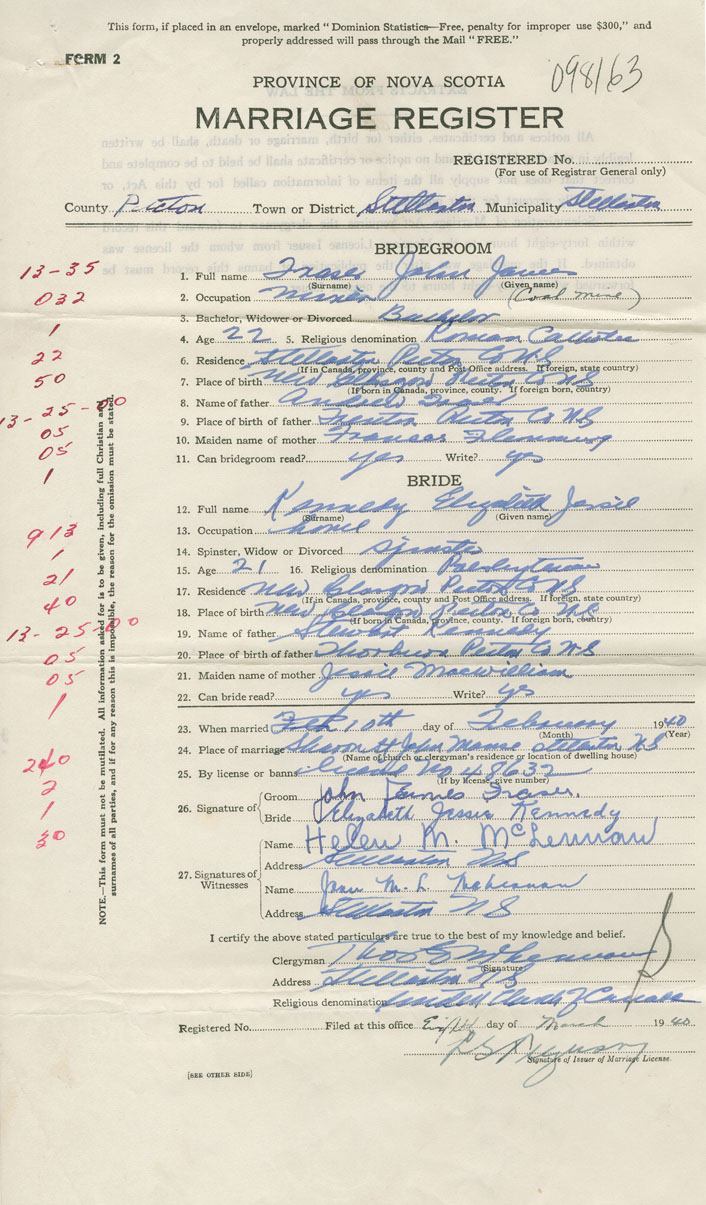 This form, if placed in an envelope, marked "Dominion Statistics—Free, penalty for improper use $300," and
properly addressed will pass through the Mail "FREE."
FORM 2
098163
PROVINCE OF NOVA SCOTIA
MARRIAGE REGISTER
REGISTERED No.
(For use of Registrar General only)
County Pictou Town or District Stellarton Municipality Stellarton
BRIDEGROOM
13-35
1. Full name Fraser John James
(Surname) (Given name)
032
2. Occupation Miner (Coal Mine)
3. Bachelor, Widower or Divorced Bachelor
1
4. Age 22 5. Religious denomination Roman Catholic
22
6. Residence Stellarton Pictou Co NS
(If in Canada, province, county and Post Office address. If foreign, state country)
50
7. Place of birth New Glasgow Pictou Co NS
(If born in Canada, province, county. If foreign born, country)
13-25-00
8. Name of father Fraser
05
9. Place of birth of father Pictou Co NS
05
10. Maiden name of mother Frances Flemming
1
11. Can bridegroom read? yes Write? yes
BRIDE
12. Full name Kennedy Elizabeth Jessie
(Surname) (Given name)
913
13. Occupation home
1
14. Spinster, Widow or Divorced Spinster
21
15. Age 21 16. Religious denomination Presbyterian
40
17. Residence New Glasgow Pictou Co NS
(If in Canada, province, county and Post Office address. If foreign, state country)
18. Place of birth New Glasgow Pictou Co NS
(If born in Canada, province, county. If foreign born, country)
13-25-00
19. Name of father Stewart Kennedy
05
20. Place of birth of father Thorburn Pictou Co NS
05
21. Maiden name of mother Jessie MacWilliam
1
22. Can bride read? yes Write? yes
23. When married Feb 10th day of February 1940
(Month) (Year)
240
24. Place of marriage St John Manse Stellarton NS
(Name of church or clergyman's residence or location of dwelling house)
2
25. By license or banns License No 48632
(If by license, give number)
1
26. Signature of Groom John James Fraser.
30
Bride Elizabeth Jessie Kennedy
27. Signatures of Witnesses
Name Helen M. McLennan
Address Stellarton NS
Name M. L.
Address Stellarton NS
NOTE.—This form must not be mutilated. All information asked for is to be given, including full Christian and
surnames of all parties, and if for any reason this is impossible, the reason for the omission must be stated.
I certify the above stated particulars are true to the best of my knowledge and belief.
Clergyman Thos
(Signature)
Address Stellarton NS
Religious denomination United Church of Canada
Registered No. Filed at this office Eighth day of March 1940
Ferguson
Signature of Issuer of Marriage License.
[SEE OTHER SIDE]